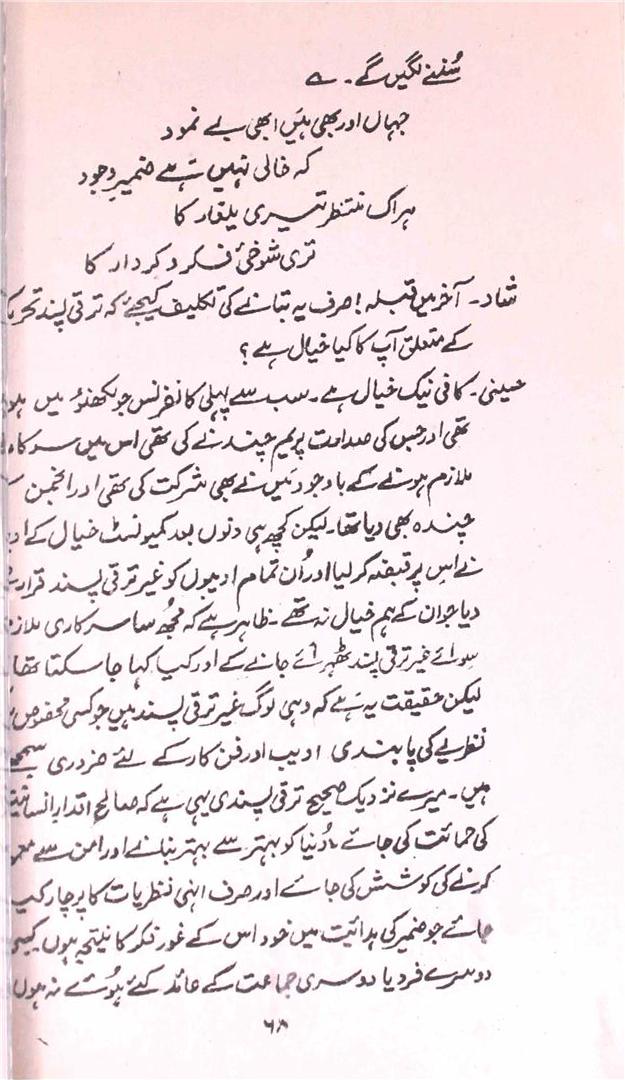 سُننے لگیں گے۔ ؎
جہاں اور بھی ہیں ابھی بے نمود
کہ خالی نہیں ہے ضمیرِ وجود
ہر اک منتظر تیری یلغار کا
تری شوخیٔ فکر و کردار کا
شاد۔ آخر میں قبلہ! صرف یہ بتانے کی تکلیف کیجئے کہ ترقی پسند تحریک
کے متعلق آپ کا کیا خیال ہے؟
حسینی۔ کافی نیک خیال ہے۔ سب سے پہلی کانفرنس جو لکھنؤ میں
تھی اور جس کی صدارت پریم چند نے کی تھی اس میں
ملازم ہونے کے باوجود میں نے بھی شرکت کی تھی اور انجمن
چندہ بھی دیا تھا۔ لیکن کچھ ہی دنوں بعد کمیونسٹ خیال کے
نے اس پر قبضہ کر لیا اور اُن تمام ادیبوں کو غیر ترقی پسند قرار
دیا جو ان کے ہم خیال نہ تھے۔ ظاہر ہے کہ مجھ سا سرکاری
سوائے غیر ترقی پسند ٹھہرائے جانے کے اور کیا کہا جا سکتا تھا
لیکن حقیقت یہ ہے کہ وہی لوگ غیر ترقی پسند ہیں جو کسی مخصوص
نظریے کی پابندی ادیب اور فن کار کے لئے ضروری
ہیں۔ میرے نزدیک صحیح ترقی پسندی یہی ہے کہ صالح اقدارِ
کی حمائت کی جائے، دُنیا کو بہتر سے بہتر بنانے اور امن سے
کرنے کی کوشش کی جائے اور صرف اپنی نظریات کا پرچار
جائے جو ضمیر کی ہدائیت میں خود اس کے غور و فکر کا نتیجہ ہوں
دوسرے فرد یا دوسری جماعت کے عائد کئے ہوئے نہ ہوں
۶۸